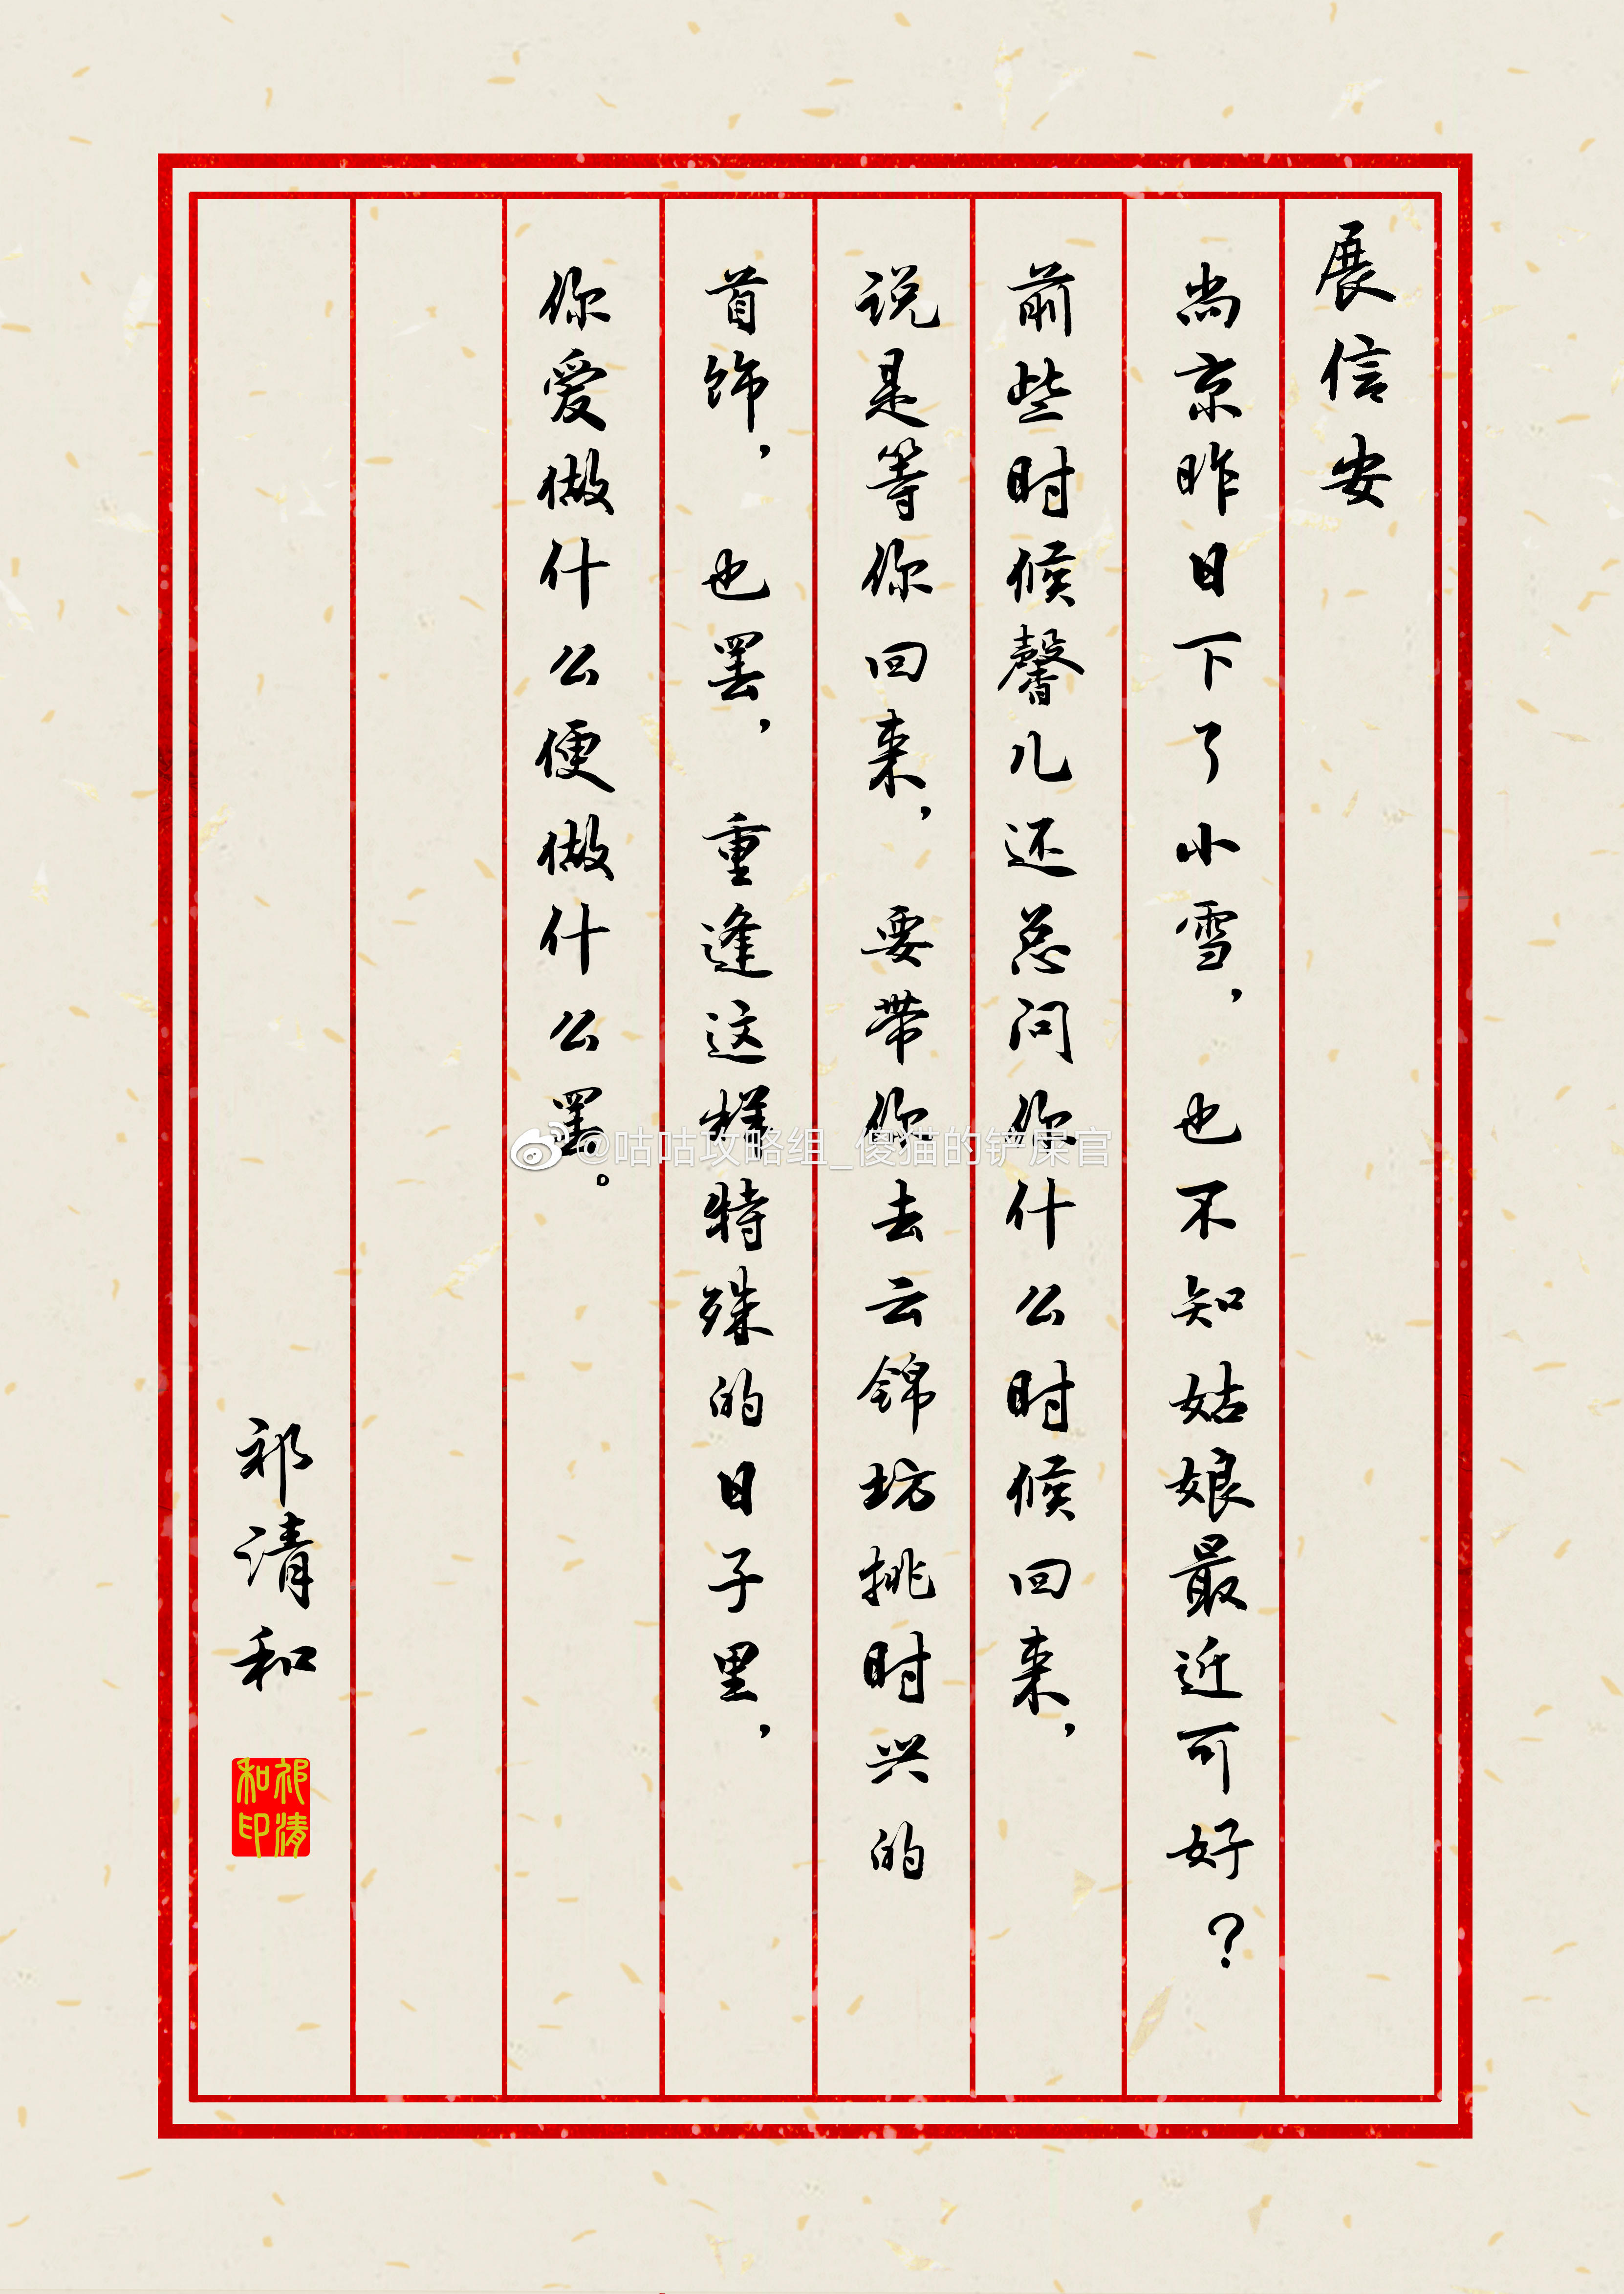 展信安
尚京昨日下了小雪，也不知姑娘最近可好？
前些时候馨儿还总问你什么时候回来，
说是等你回来，要带你去云锦坊挑时兴的
首饰，也罢，重逢这样特殊的日子里，
你爱做什么便做什么罢。
祁清和
祁清和印
@咕咕攻略组_傻猫的铲屎官